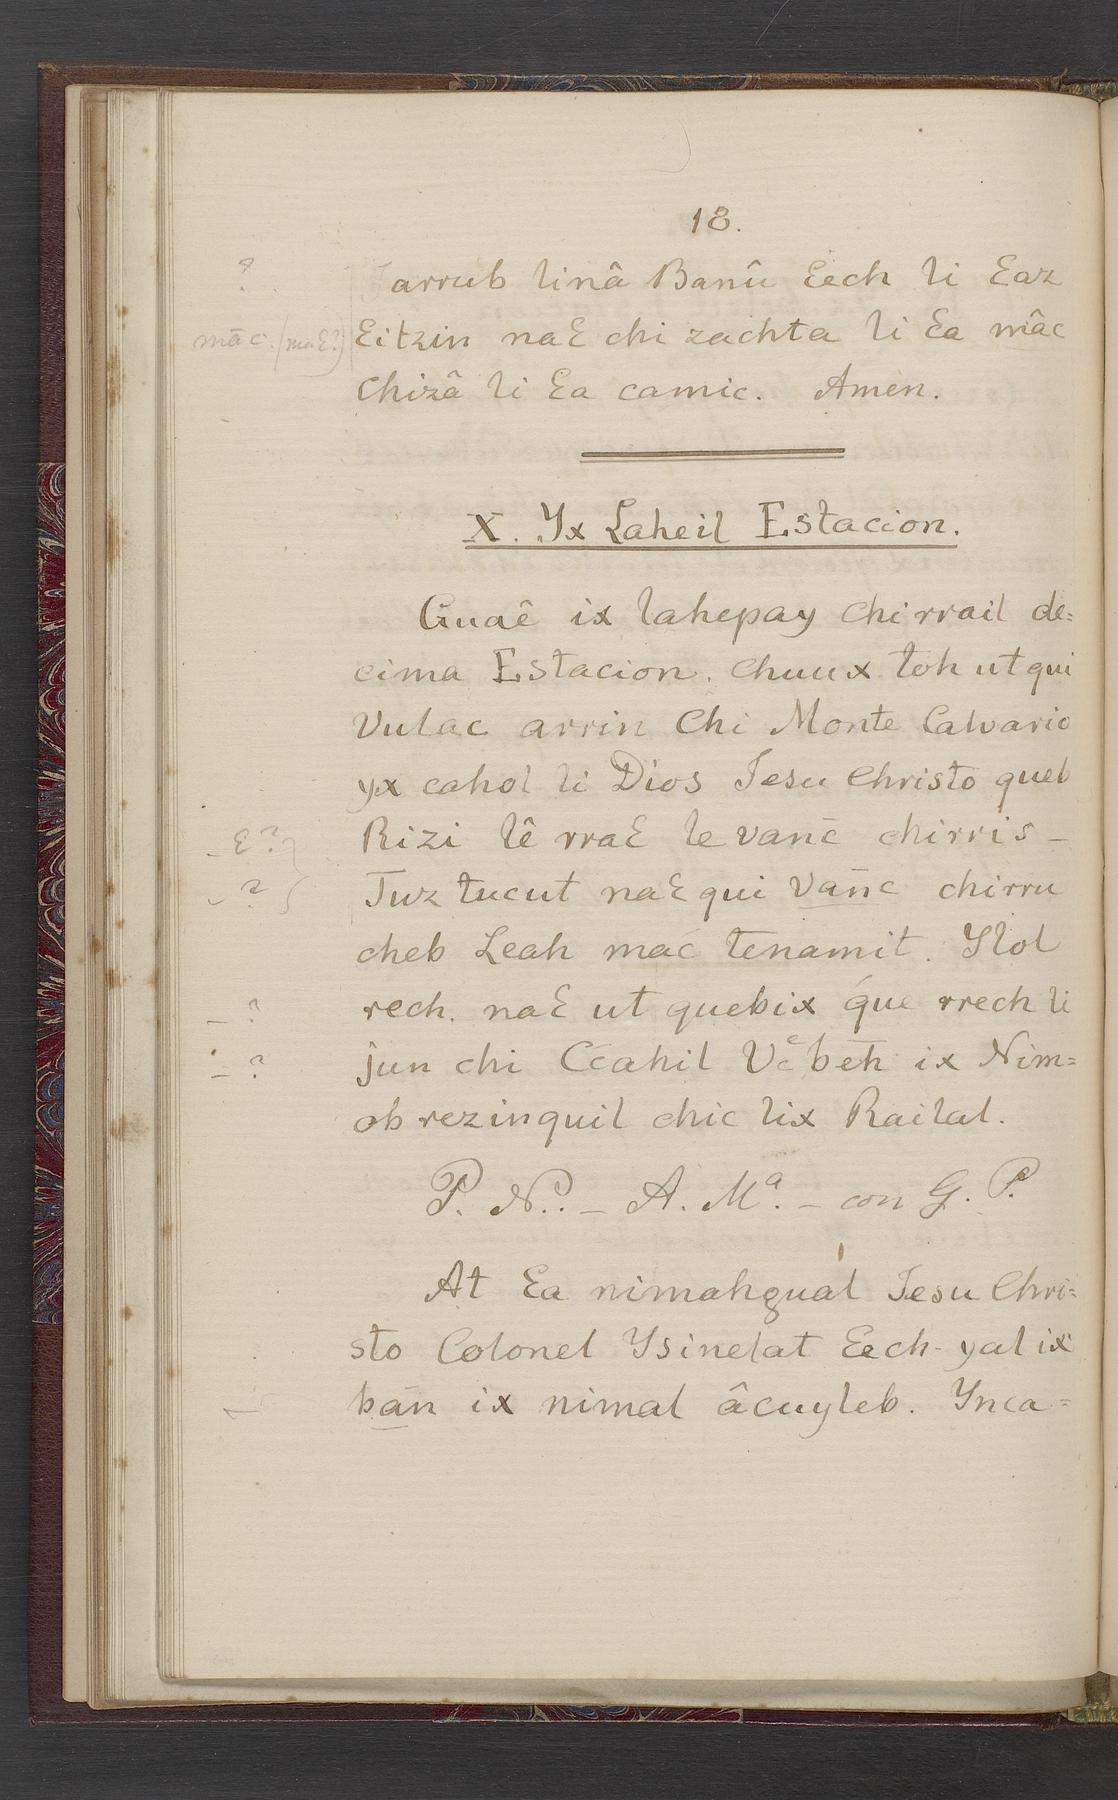 18.
? arrub linâ Banû Ɛech li Ɛaz
māc. (maƐ?) Ɛitzin naƐ chi zachta li Ɛa mâc
Chizâ li Ɛa camic. Amen.
X. Yx Laheil Estacion.
Guaê ix lahepay chirrail de=
cima Estacion. Chuux toh ut qui
Vulac arrin Chi Monte Calvario
yx cahol li Dios Jesu Christo queb
– Ɛ? Rizi lê rraƐ le vanc̄ chirris –
? Tuz tucut naƐ qui Vāñc chirru
cheb Leah mac tenamit. Ylol
– ? rech. naƐ ut quebix que rrech li
– ? jun chi Ccahil Vcebēh ix Nim=
ob rezinquil chic lix Railal.
P. N. – A. Mª. – con G. P.
At Ɛa nimahgual Jesu Chri=
sto Colonel Ysinelat Ɛech yal ix
– bān ix nimal âcuyleb. Ynca=